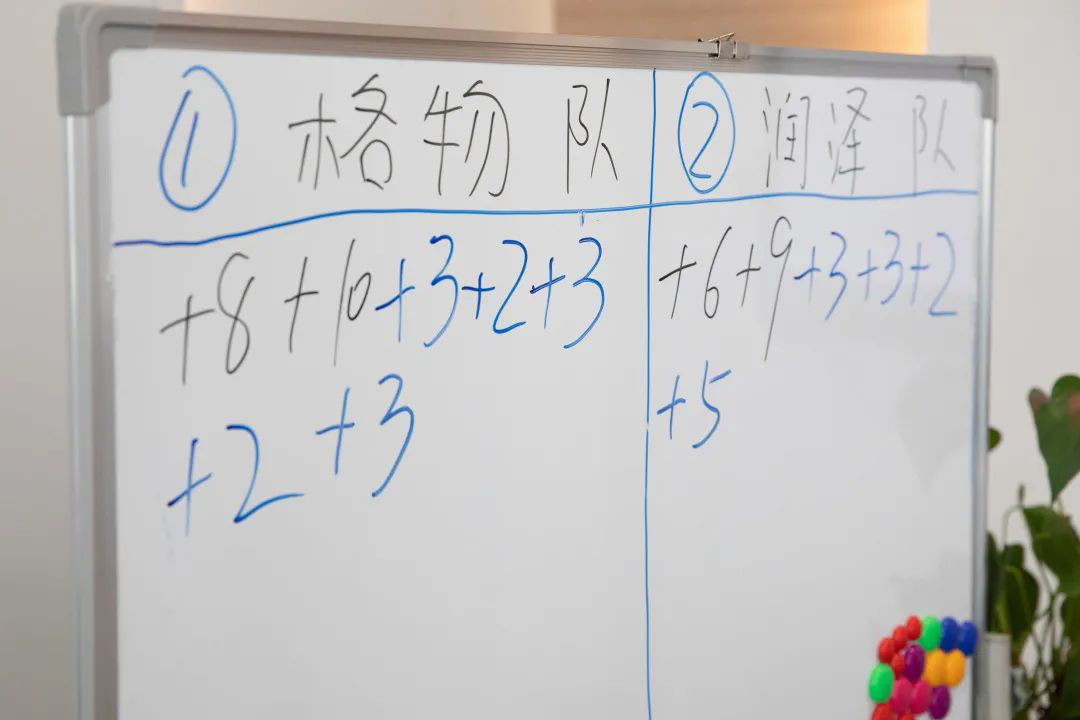 ① 格物队
+8+10+3+2+3
+2+3
② 润泽队
+6+9+3+3+2
+5